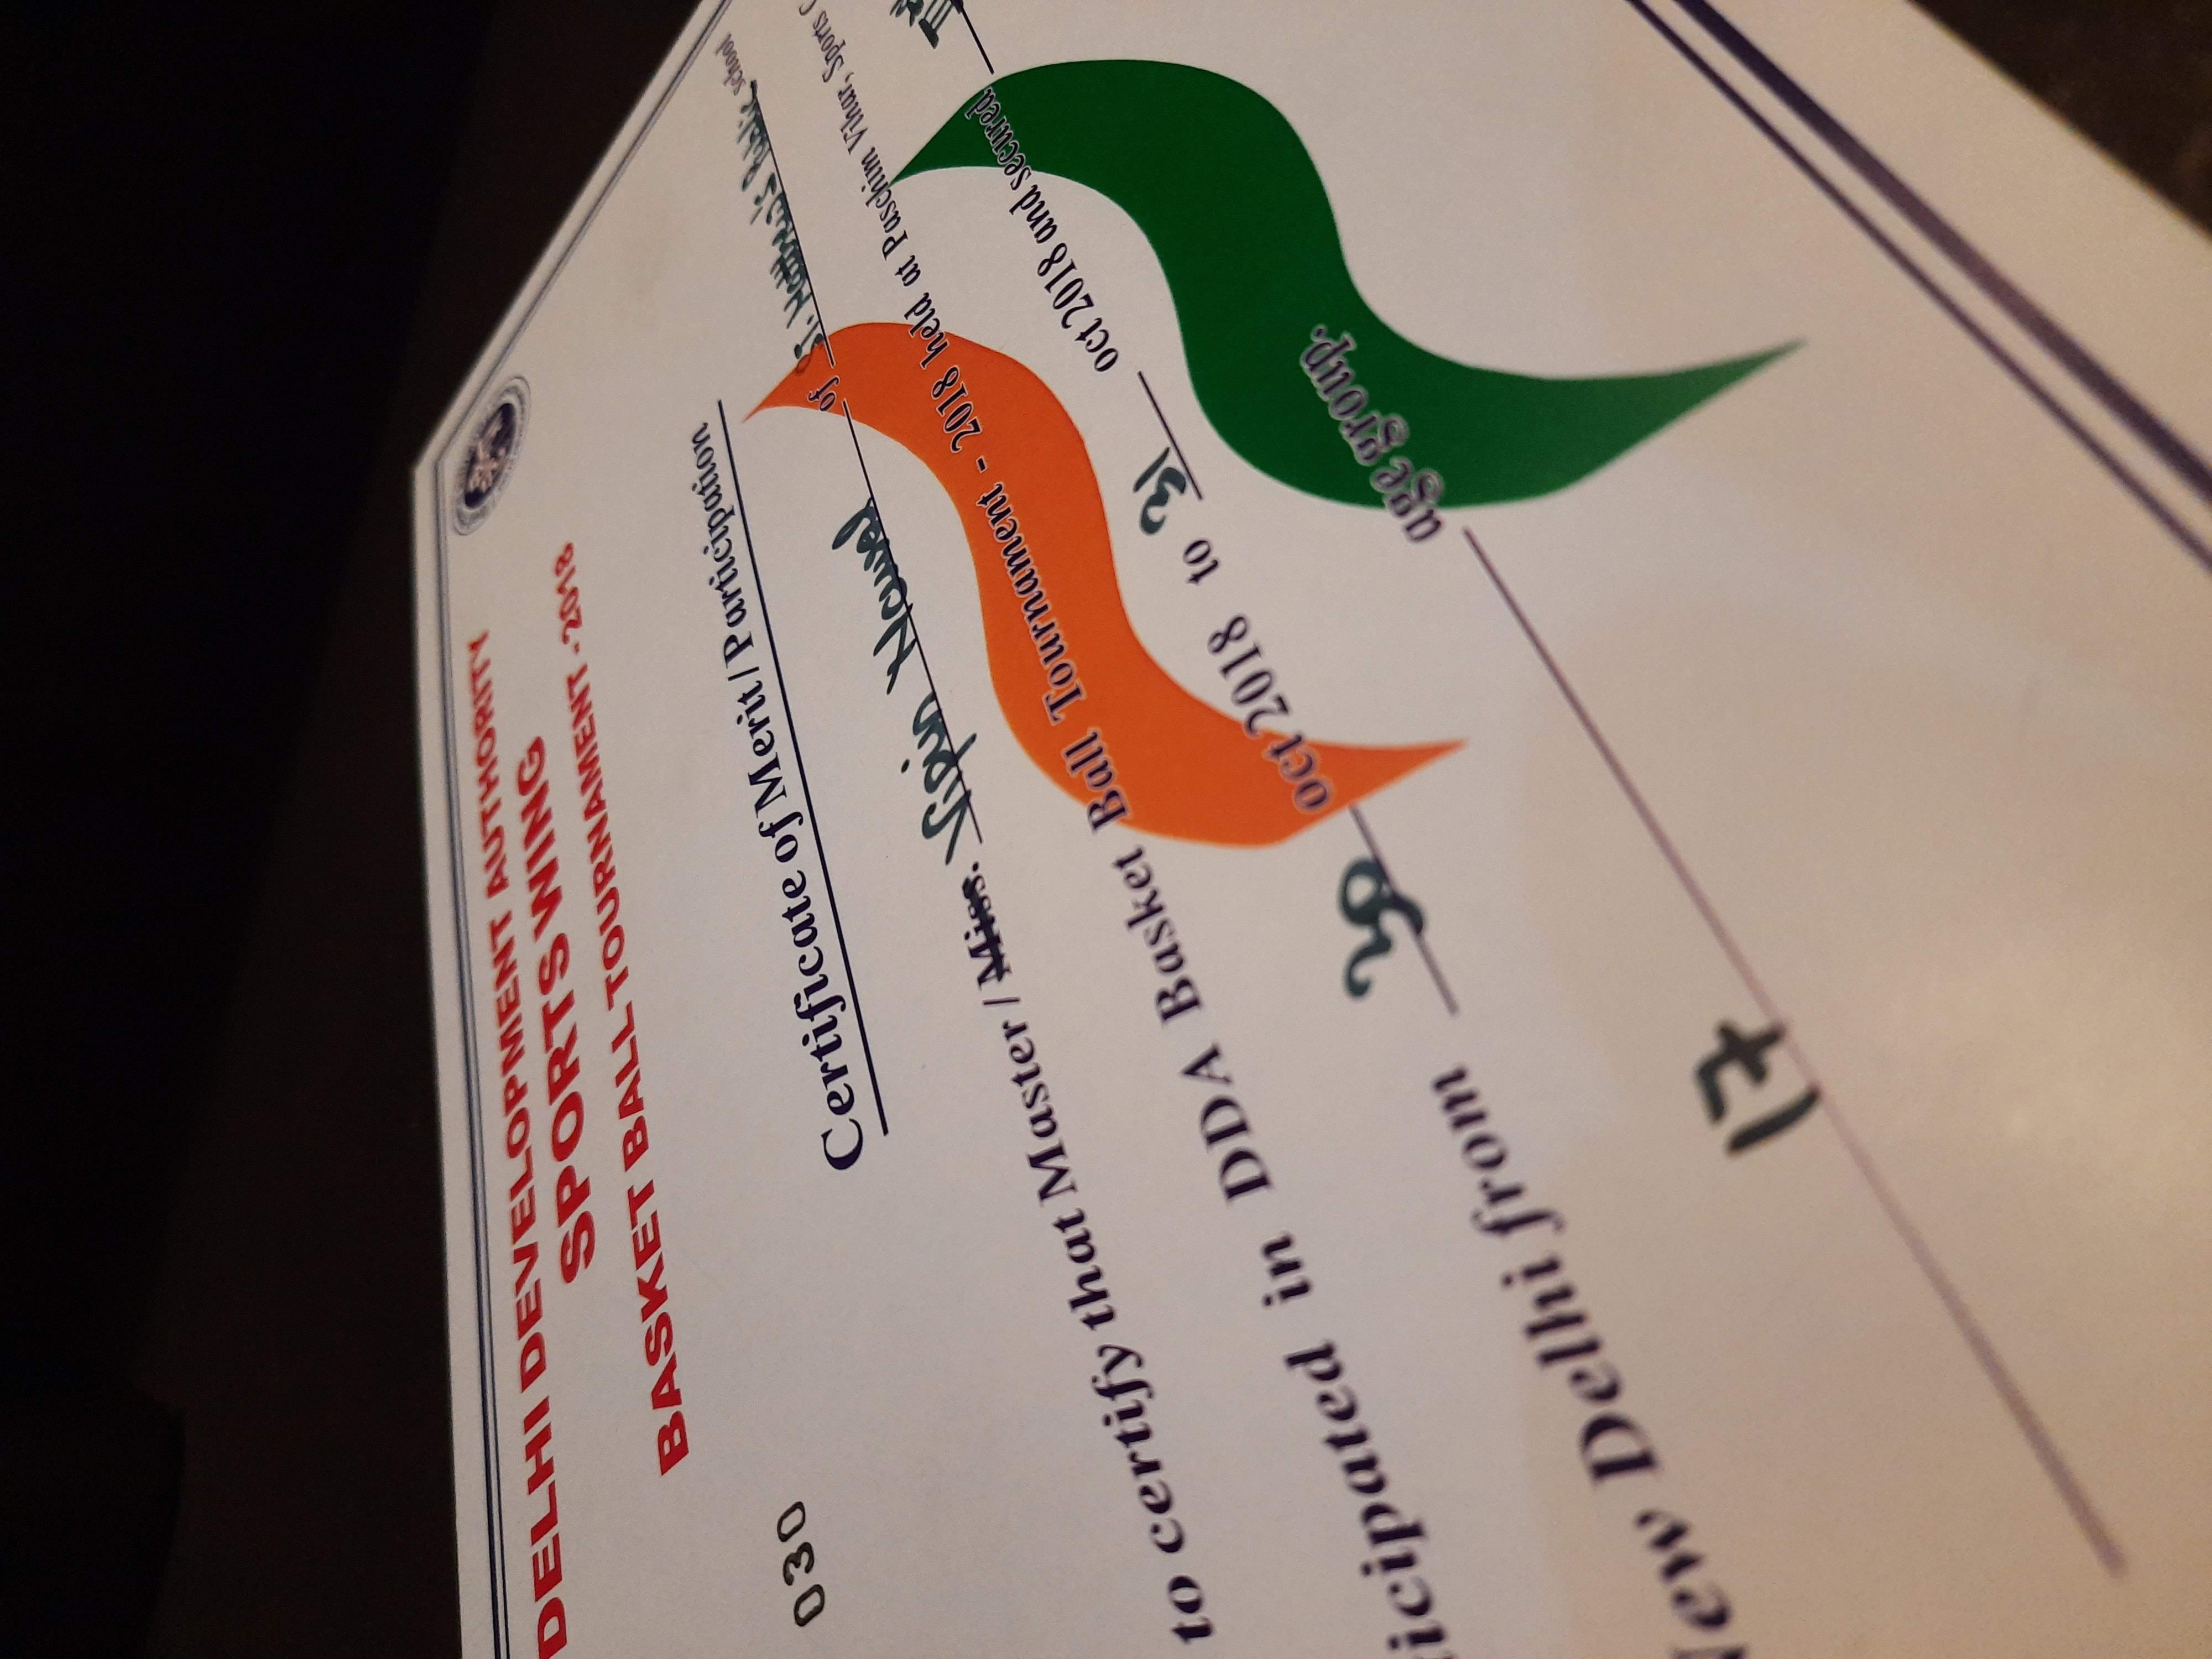 DELHI DEVELOPMENT AUTHORITY
SPORTS WING
BASKET BALL TOURNAMENT - 2018
030
Certificate of Merit / Participation
to certify that Master / Miss. Vipin Nawal of St. Matthew's Public school
icipated in DDA Basket Ball Tournament - 2018 held at Paschim Vihar, Sports C
New Delhi from 30 oct 2018 to 31 oct 2018 and secured
17 age group.